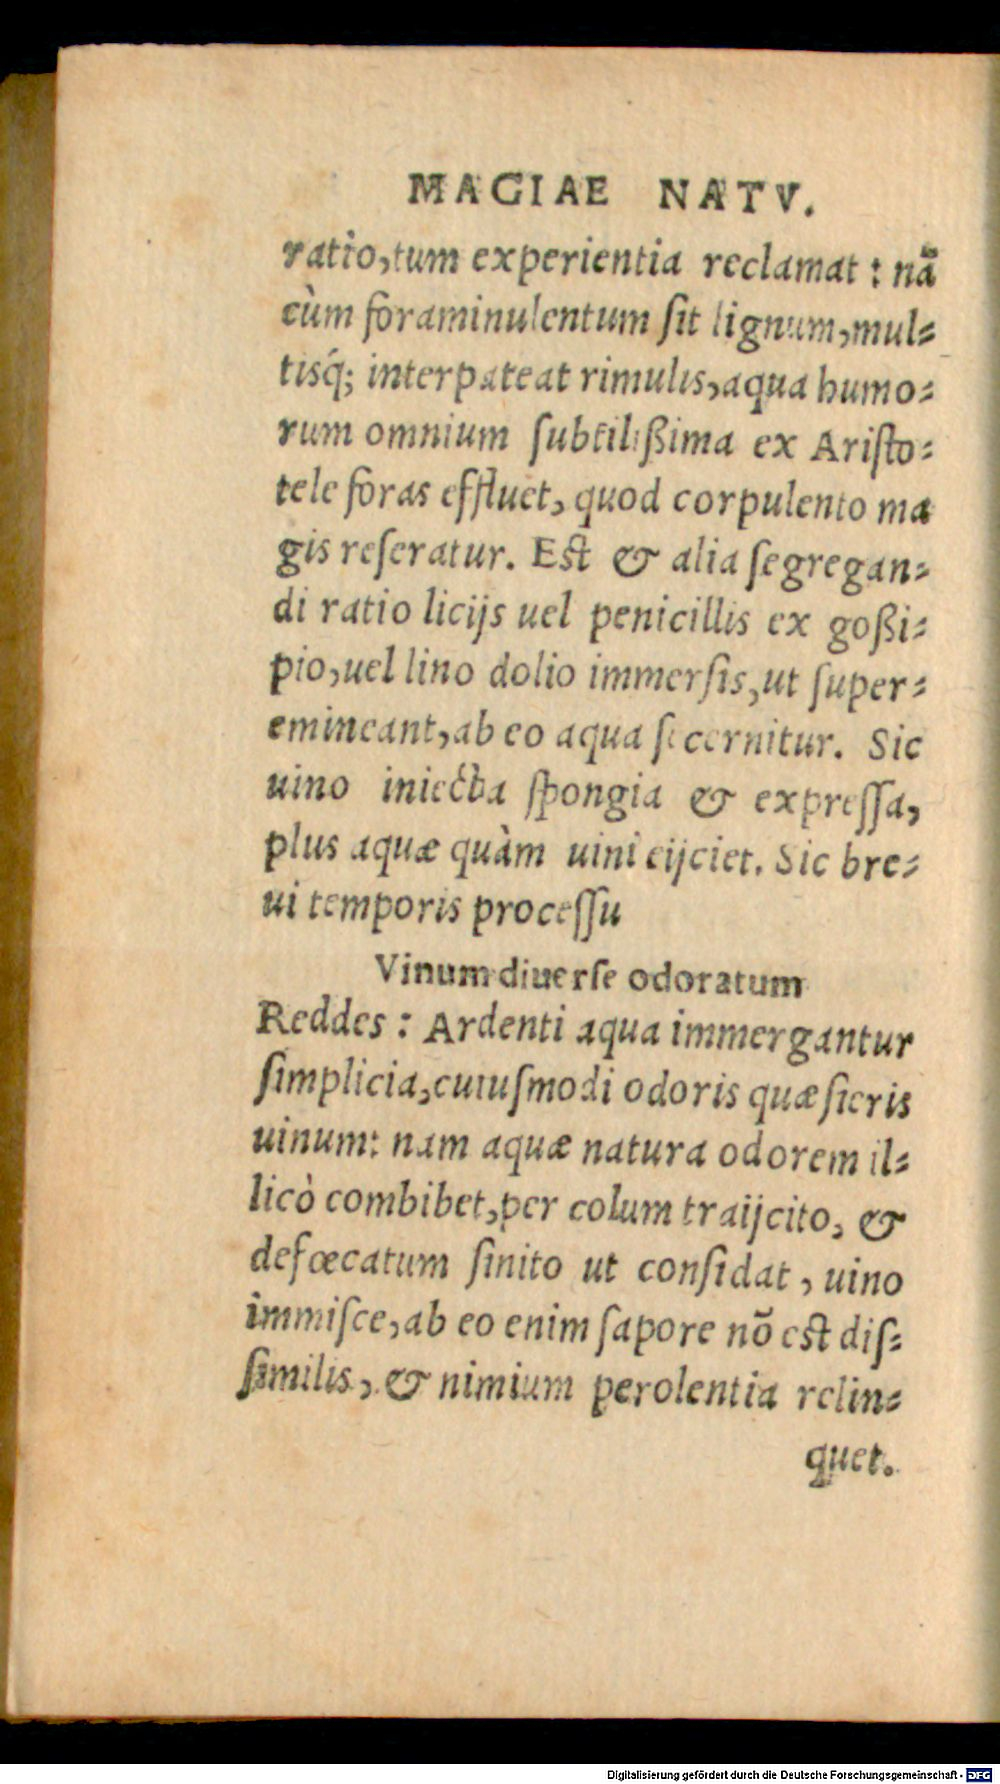 MAGIAE NATV.
ratio,tum experientia reclamat : nã
cùm foraminulentum ſit lignum,mul⸗
tisq́; interpateat rimulis,aqua humo⸗
rum omnium ſubtilißima ex Ariſto⸗
tele foras effluet, quod corpulento ma
gis reſeratur. Eſt & alia ſegregan⸗
di ratio licijs uel penicillis ex goßi⸗
pio,uel lino dolio immerſis,ut ſuper⸗
emineant,ab eo aqua ſecernitur. Sic
uino iniecta ſpongia & expreſſa,
plus aquæ quàm uini eijciet. Sic bre⸗
ui temporis proceſſu
Vinum diuerſe odoratum
Reddes : Ardenti aqua immergantur
ſimplicia,cuiuſmodi odoris quæſieris
uinum: nam aquæ natura odorem il⸗
licò combibet,per colum traijcito, &
defœcatum ſinito ut conſidat , uino
immiſce,ab eo enim ſapore nõ eſt diſ⸗
ſimilis, & nimium perolentia relin⸗
quet.
Digitalisierung gefördert durch die Deutsche Forschungsgemeinschaft - DFG